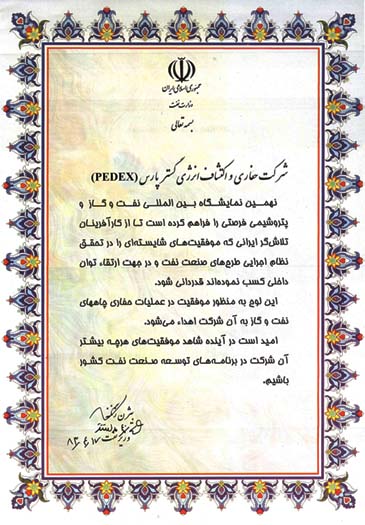 جمهوری اسلامی ایران
وزارت نفت
بسمه تعالی
شرکت حفاری و اکتشاف انرژی گستر پارس (PEDEX)
نهمین نمایشگاه بین المللی نفت و گاز و
پتروشیمی فرصتی را فراهم کرده است تا از کارآفرینان
تلاش‌گر ایرانی که موفقیت‌های شایسته‌ای را در تحقق
نظام اجرایی طرح‌های صنعت نفت و در جهت ارتقاء توان
داخلی کسب نموده‌اند قدردانی شود.
این لوح به منظور موفقیت در عملیات حفاری چاههای
نفت و گاز به آن شرکت اهداء می‌شود.
امید است در آینده شاهد موفقیت‌های هرچه بیشتر
آن شرکت در برنامه‌های توسعه صنعت نفت کشور
باشیم.
وزیر نفت